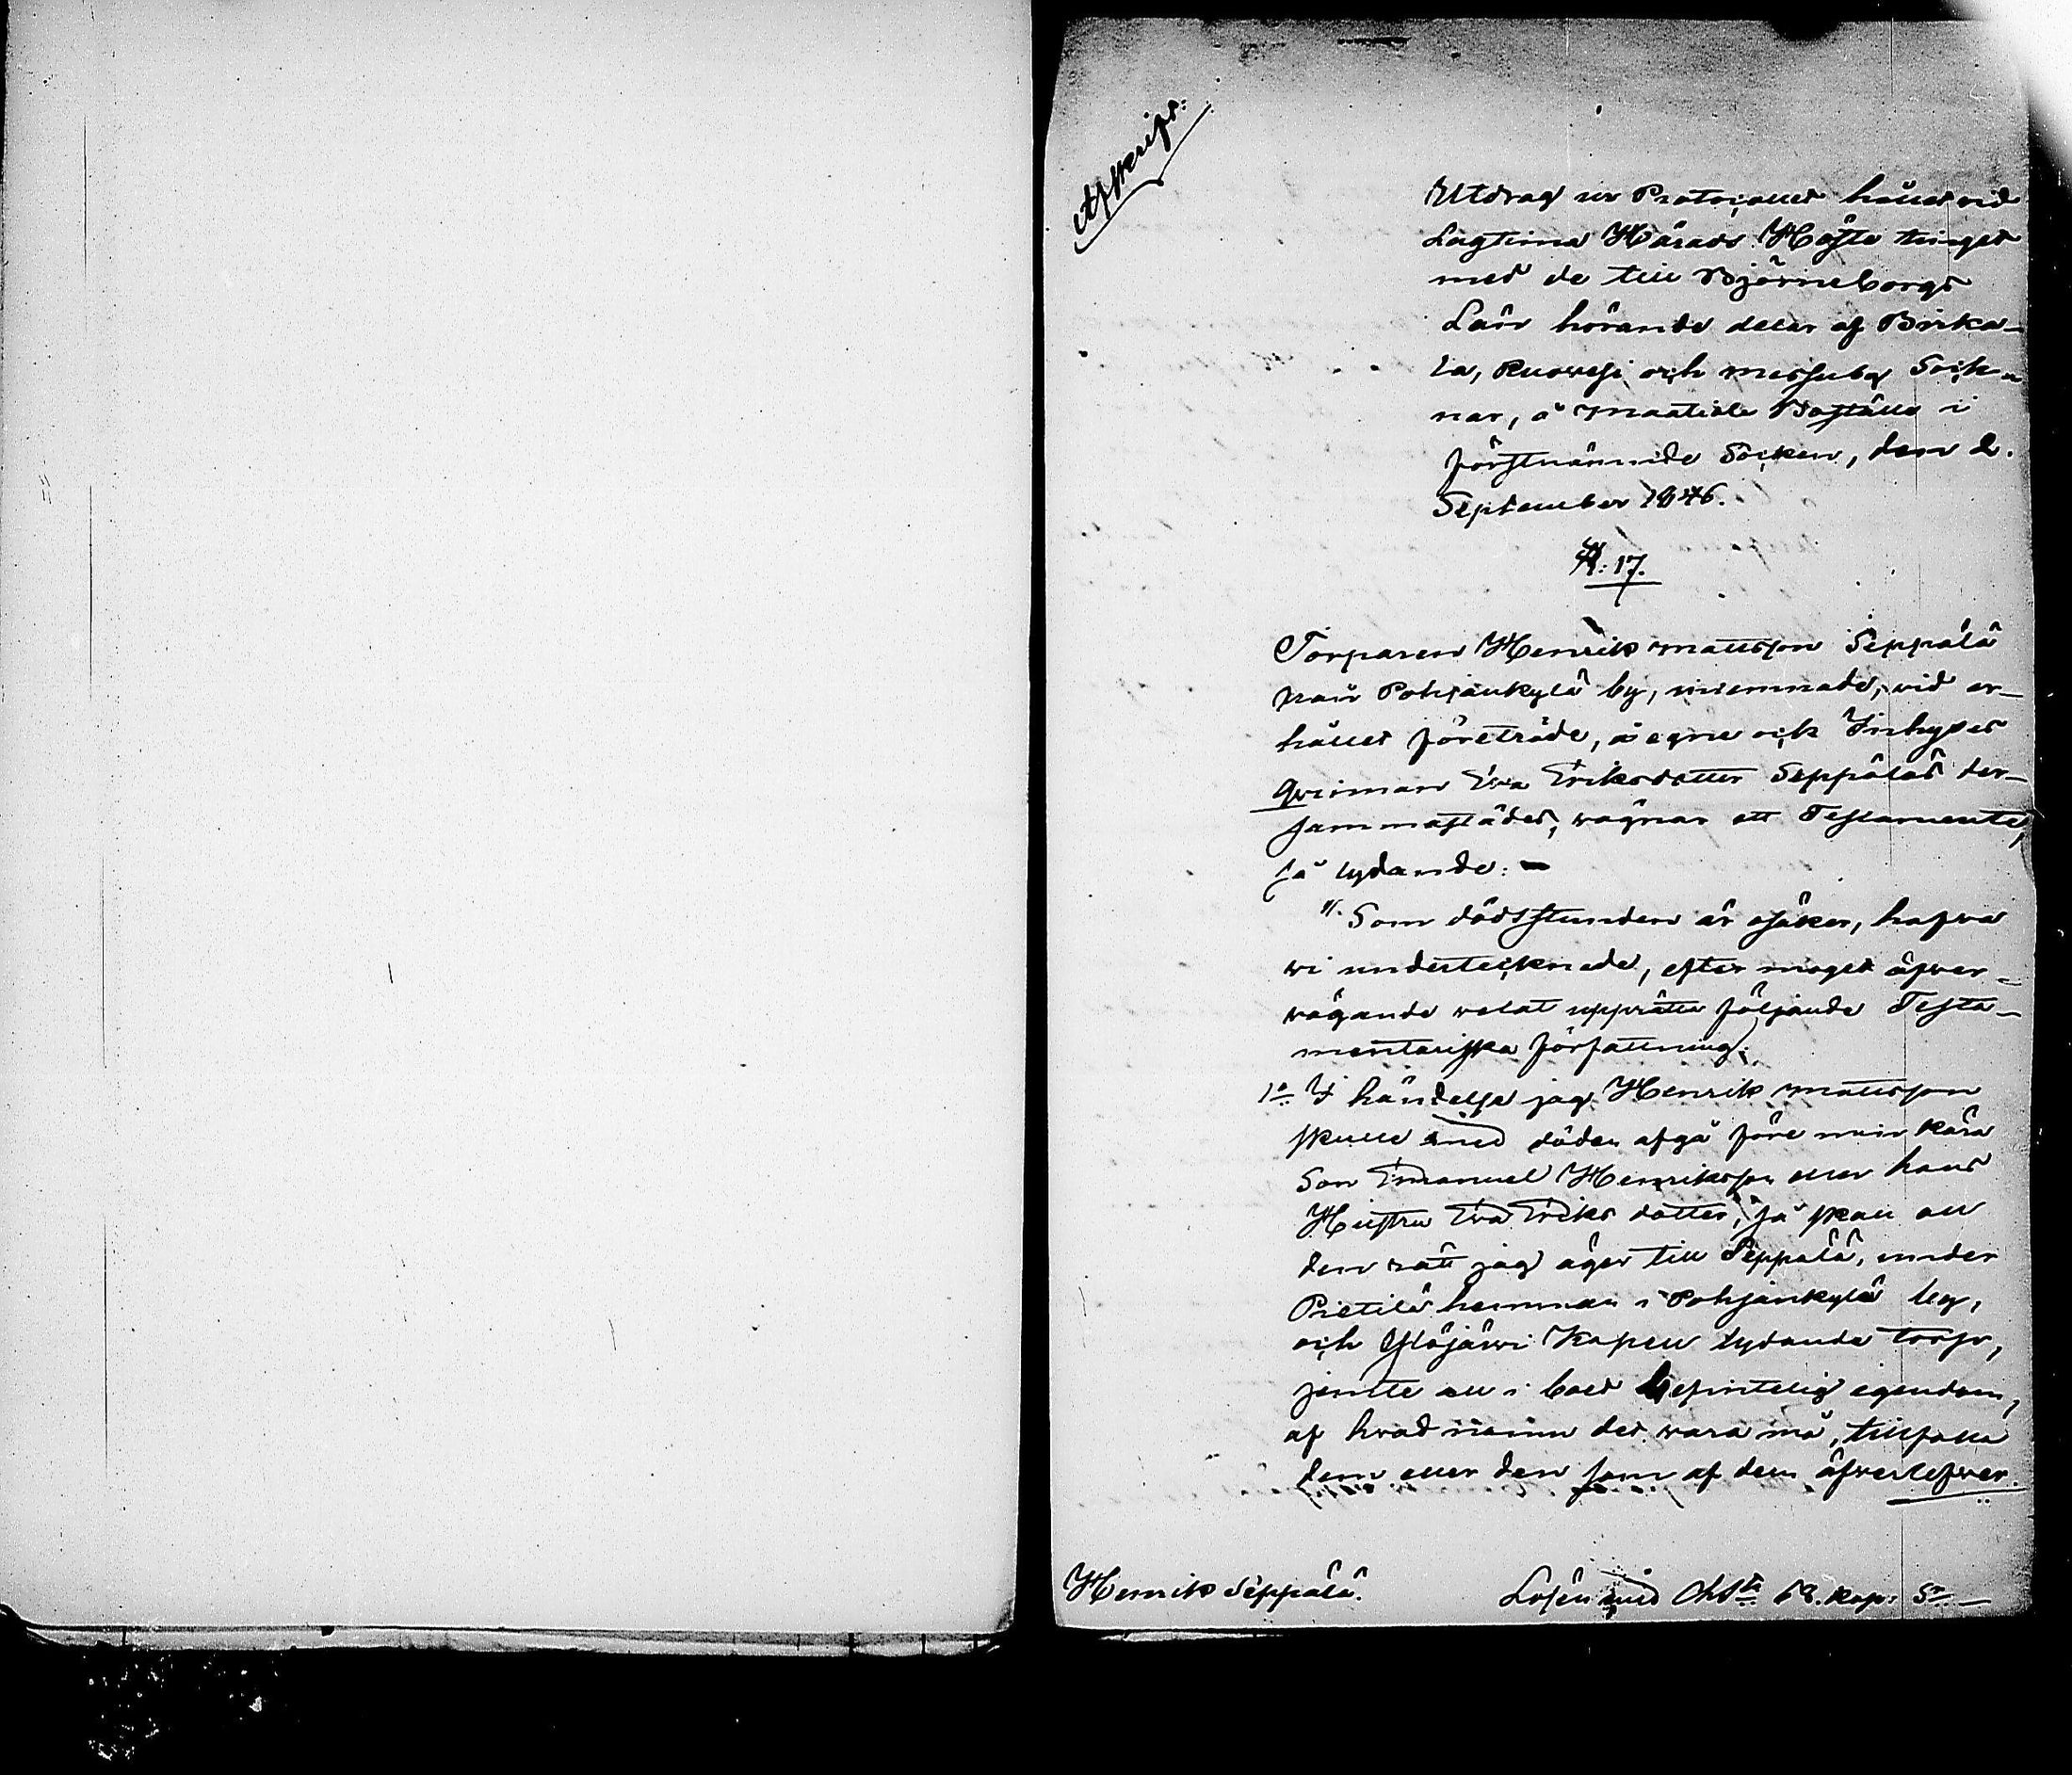 Afskrift:
Utdrag ur Protocollet hållet vid
Lagtima Härads Höste tinget
med de till Björneborgs
Län hörande delar af Birka-
la, Ruowesi och Messuby Sock-
nar, å Maatiala Boställe i
förstnämnde Socken, den 2.
September 1846.
§: 17.
Torparen Henrik Mattsson Seppälä
från Pohjankylä by, inlemnade, vid er-
hållet företräde, å egne och Inhyses
Qvinnan Eva Eriksdotter Seppäläs der-
sammastädes, wägnar ett Testamente,
så lydande: -
"Som dödsstunden är osäker, hafwa
wi undertecknade, efter moget öfwer-
wägande welat upprätta följande Testa-
mentariska författning:
1o I händelse jag Henrik Mattsson
skulle med döden afgå före min kära
Son Emanuel Henriksson eller hans
Hustru Eva Eriks dotter, så skall all
den rätt jag äger till Seppälä, under
Pietilä hemman i Pohjankylä by,
och Ylöjärwi Kapell lydande torp,
jemte all i boet befintelig egendom,
af hvad namn det wara må, tillfalla
dem eller den som af dem öfwerlefwer.
Henrik Seppälä. Lösen med Chta 68. kop: Sr. -